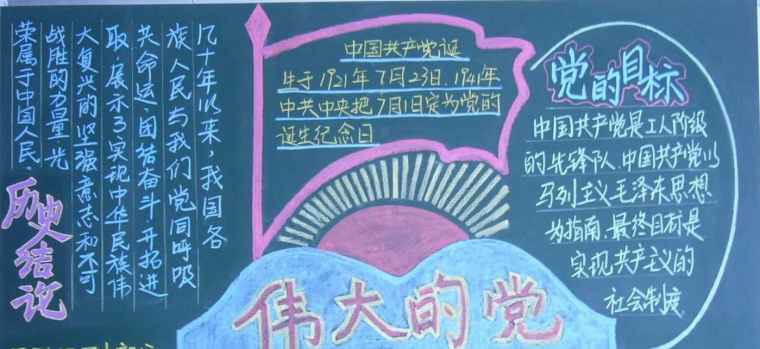 中国共产党诞
生于1921年7月23日.1941年
中共中央把7月1日定为党的
诞生纪念日
党的目标
中国共产党是工人阶级
的先锋队.中国共产党以
马列主义毛泽东思想
为指南.最终目标是
实现共产主义的
社会制度
几十年以来,我国各
族人民与我们党同呼吸
共命运,团结奋斗,开拓进
取,展示了实现中华民族伟
大复兴的坚强意志和不可
战胜的力量,光
荣属于中国人民
历史结论
伟大的党